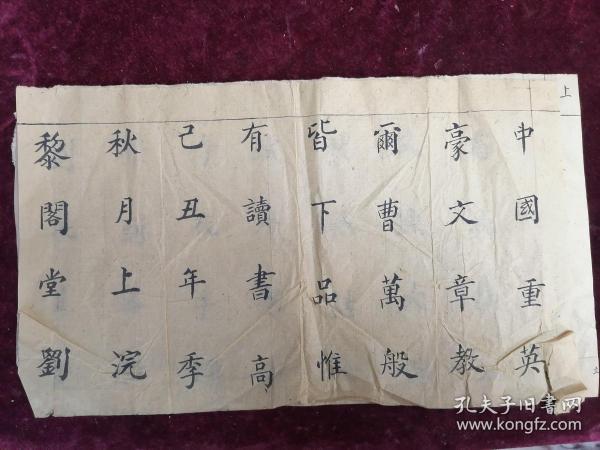 中國重英
豪文章教
爾曹萬般
皆下品惟
有讀書高
己丑年季
秋月上浣
黎閣堂劉
上
孔夫子旧书网
www.kongfz.com